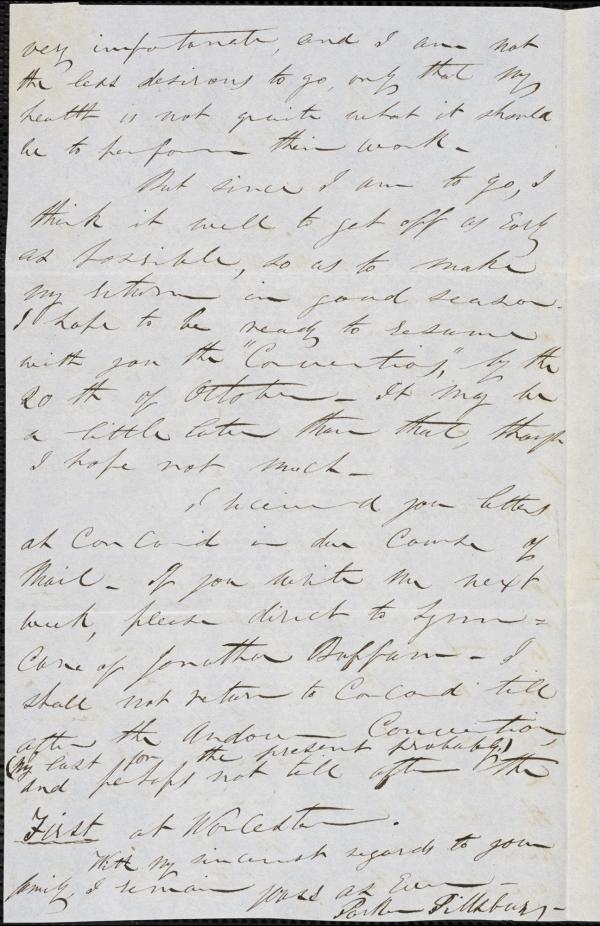 very important, and I am not
the less desirous to go, only that my
health is not quite what it should
be to perform their work.
But since I am to go, I
think it well to get off as Early
as possible, so as to make
my return in good season.
I hope to be ready to resume
with you the "Conventions," by the
20th of October - It may be
a little later than that, though
I hope not much -
I received your letters
at Concord in due Course of
Mail - If you write me next
week, please direct to Lynn =
Care of Jonathan Buffum - I
shall not return to Concord till
after the Andover Convention,
(My last for the present probably)
and perhaps not till after the
First at Worcester.
With my sincerest regards to your
family, I remain yours as Ever -
Parker Pillsbury -